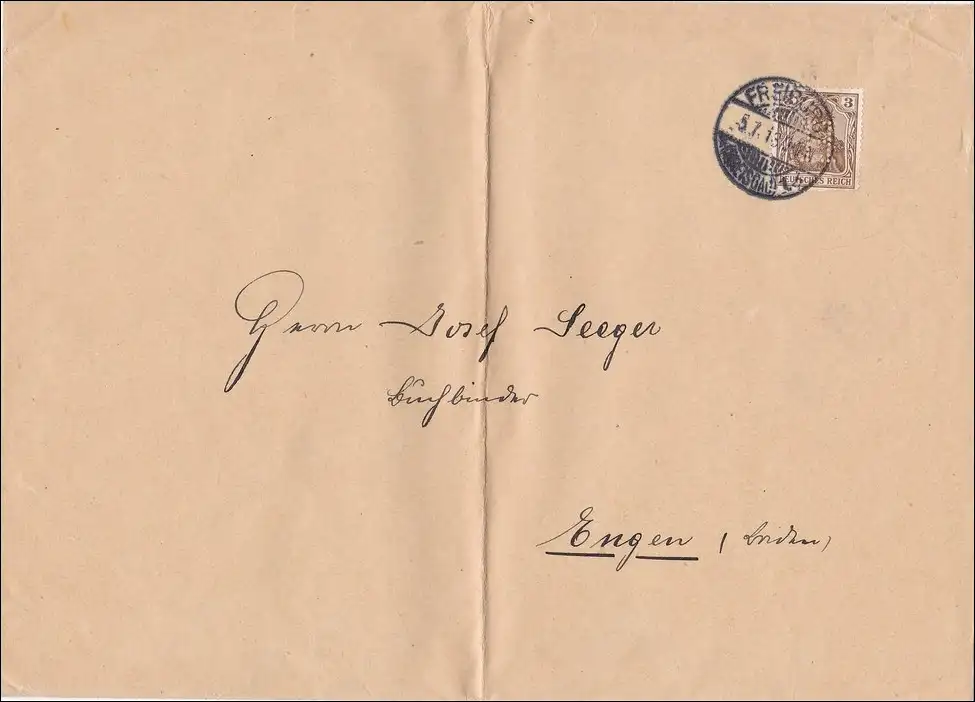 FREIBURG
5.7.13
3
DEUTSCHES REICH
Herrn Josef Seeger
Buchbinder
Engen (Baden)